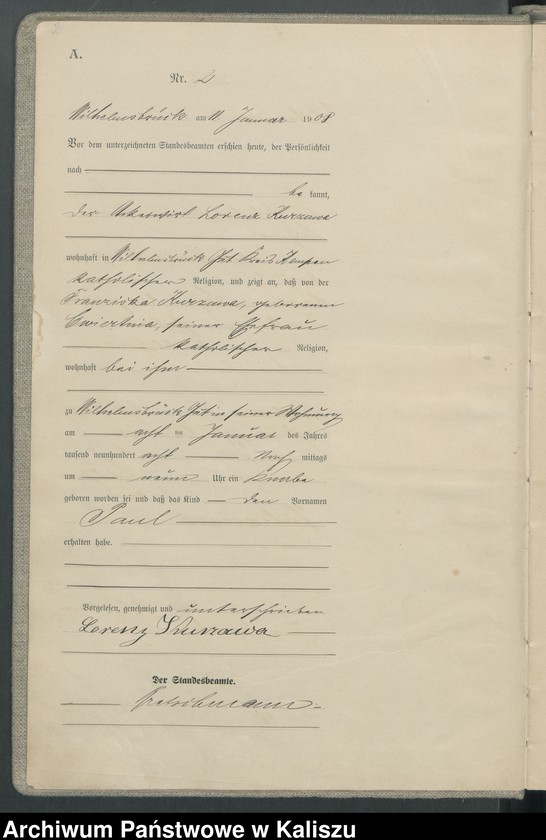 A.
Nr. 2
Wilhelmsbrück am 11 Januar 1908
Vor dem unterzeichneten Standesbeamten erschien heute, der Persönlichkeit
nach
be kannt,
der Ackerwirt Lorenz Kurzawa
wohnhaft in Wilhelmsbrück Gut Kreis Kempen
katholischer Religion, und zeigt an, daß von der
Franziska Kurzawa, geborenen
Cwiertnia, seiner Ehefrau
katholischer Religion,
wohnhaft bei ihm
zu Wilhelmsbrück Gut in seiner Wohnung
am acht ten Januar des Jahres
tausend neunhundert acht Nach mittags
um neun Uhr ein Knabe
geboren worden sei und daß das Kind den Vornamen
Paul
erhalten habe.
Vorgelesen, genehmigt und unterschrieben
Lorenz Kurzawa
Der Standesbeamte.
Archiwum Państwowe w Kaliszu